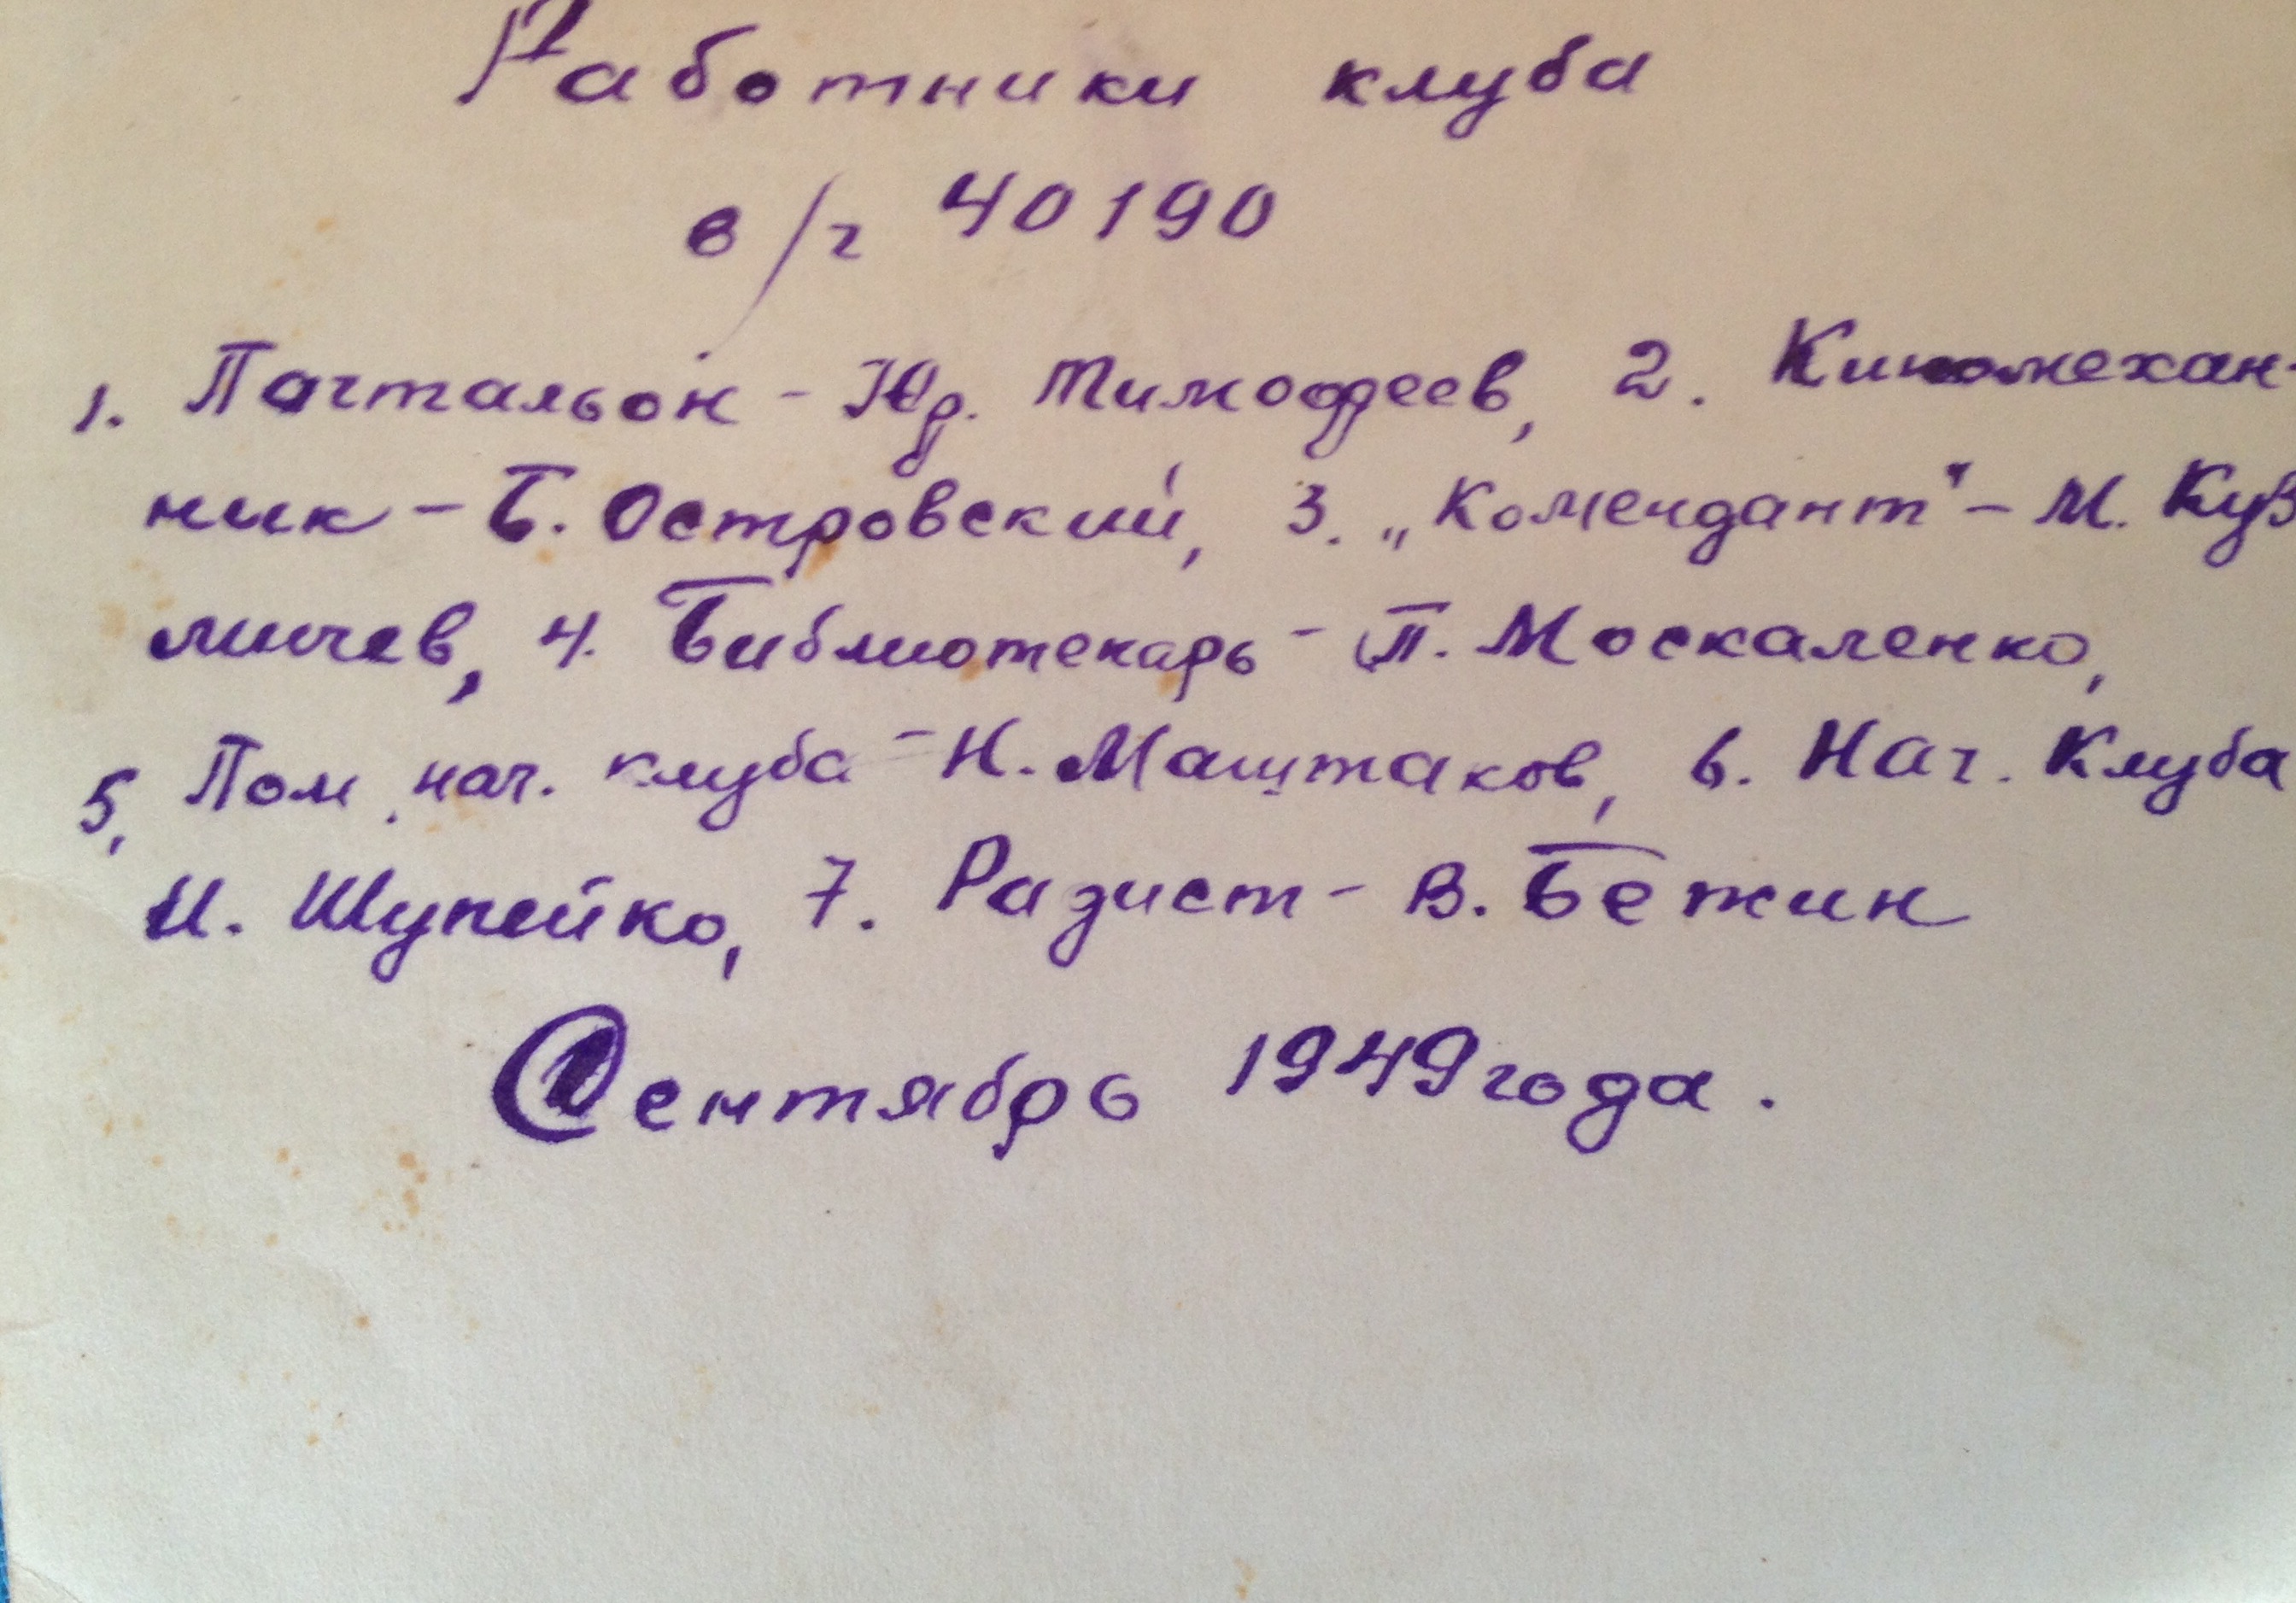 Работники клуба
в/ч 40190
1. Пачтальон - Юр. Тимофеев, 2. Киномехан-
ник - Б. Островский, 3. „Комендант" - М. Куз
мичев, 4. Библиотекарь - П. Москаленко,
5. Пом. нач. клуба - Н. Маштаков, 6. Нач. Клуба
И. Шупейко, 7. Радист - В. Бежин
Сентябрь 1949 года.